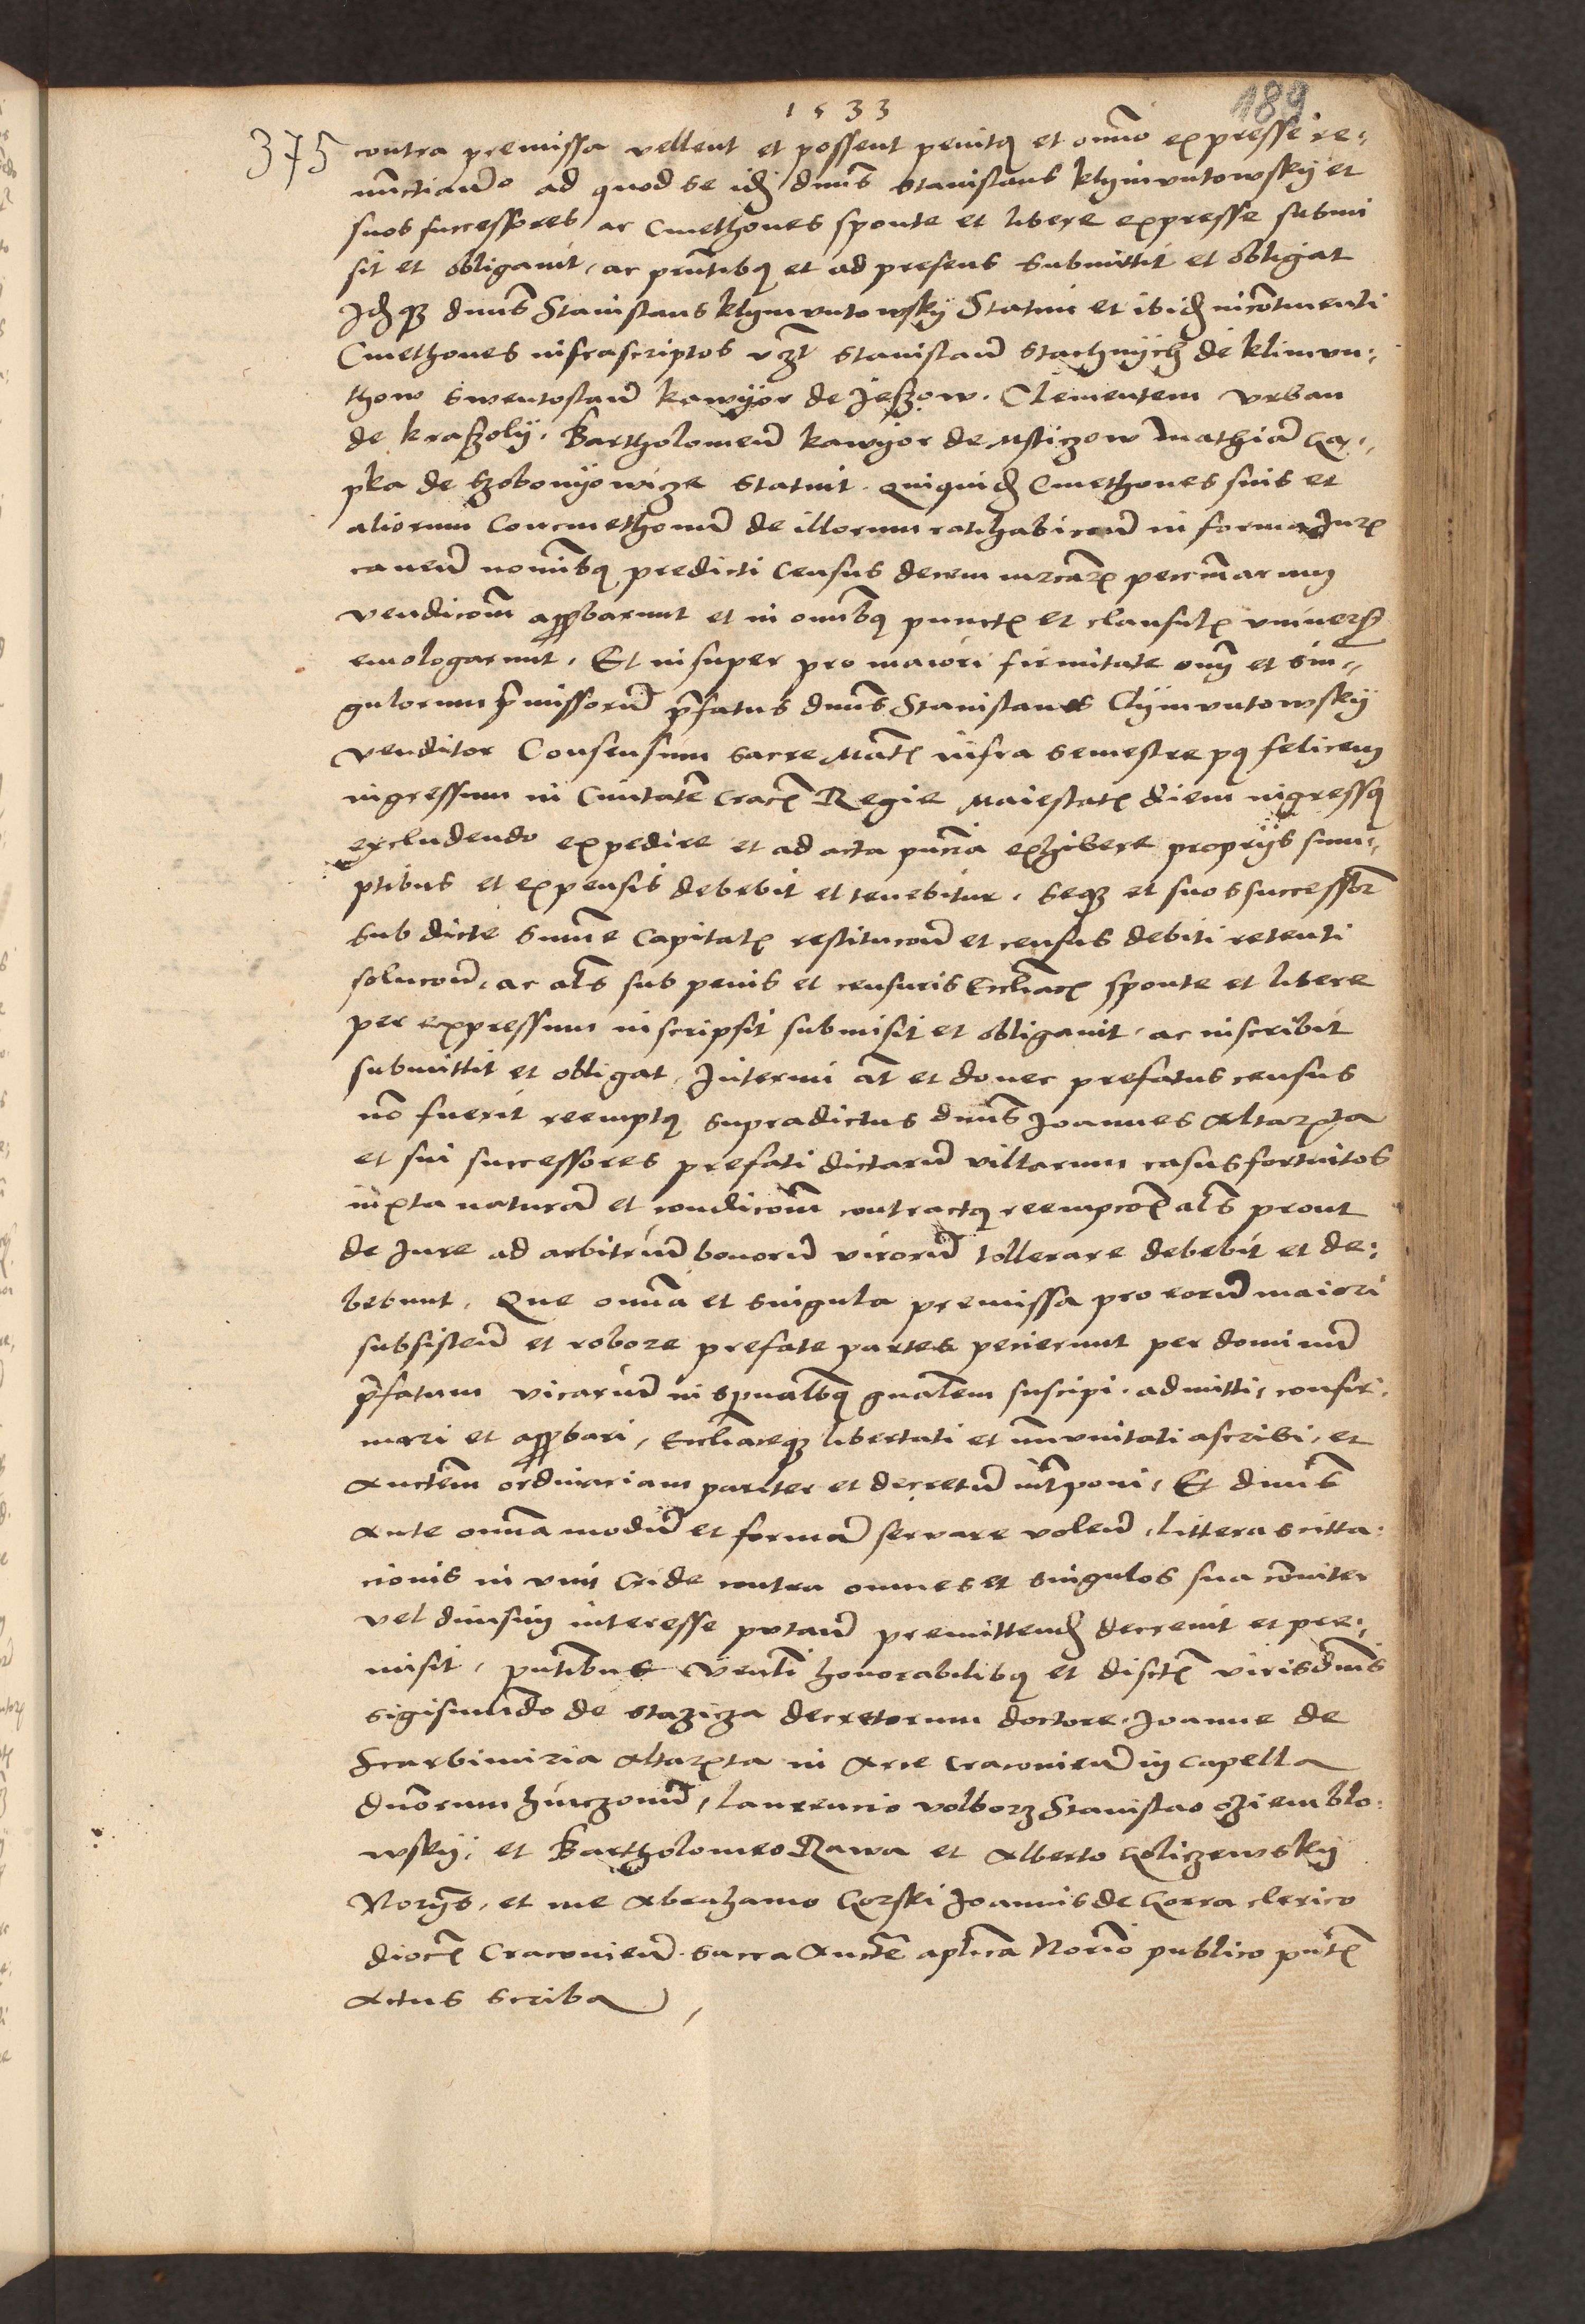 1533
189
375
contra premissa vellent et possent penitus et omnino expresse re-
nunctiando ad quod se idem dnus Stanislaus Klymuntowsky et
suos successores ac Cmethones sponte et libere expresse submi
sit et obligavit, ac presentibus et ad presens submittit et obligat
Idemque dnus Stanislaus Klymuntowsky Statim et ibidem incontinenti
Cmethones infrascriptos vzt Stanislaum Stachnych de Klimun-
thow Swentoslaum Kawyor de Jeszow. Clementem Vrban
de Kraszoly. Bartholomeum Kawyor de Msticzow Mathiam Ga-
pka de Szobonyowicze statuit. Quiquidem Cmethones suis et
aliorum Concmethonum de illorum ratihabicione in forma Juris
caven nominibus predicti Census decem marcarum pecuniarum
vendicionem approbarunt et in omnibus punctis et clausulis universis
emologarunt, Et insuper pro maiori firmitate omnium et sin-
gulorum premissorum prefatus dnus Stanislaus Clymuntowsky
venditor Consensum sacre Matis infra semestre post felicem
ingressum in Civitatem Cracoviensem Regie Maiestatis diem ingressus
excludendo expedire et ad acta presencia exhibere proprijs sum-
ptibus et expensis debebit et tenebitur, seque et suos successores
sub dicte summe Capitalis restitucione et census debiti retenti
solucione, ac alias sub penis et censuris Ecclesiasticis sponte et libere
per expressum inscripsit submisit et obligavit, ac inscribit
submittit et obligat, Interim autem et donec prefatus census
non fuerit reemptus supradictus dnus Joannes Altarista
et sui successores prefati dictarum villarum casus fortuitos
iuxta naturam et condicionem contractus reempcionis alias prout
de Jure ad arbitrium bonorum virorum tollerare debebit et de-
bebunt, Que omnia et singula premissa pro eorum maiori
subsistencia et robore prefate partes petierunt per dominum
prefatum vicarium in spiritualibus generalem suscipi, admitti, confir-
mari et approbari, Ecclesiasticeque libertati et immunitati ascribi, et
Auctoritatem ordinariam pariter et decretum interponi, Et dnus
Ante omnia modum et formam servare volens, litteras citta-
cionis in vim Cride contra omnes et singulos sua communiter
vel divisim interesse putan premittendum decrevit et pre-
misit, presentibus Venerabili honorabilibus et discretis viris dnis
Sigismundo de Stazicza decretorum doctore, Joanne de
Scarbimiria Altarista in Arce Cracoviensi in Capella
dnorum Hinczonum, Laurencio Volborz Stanislao Oziemblo-
wsky, et Bartholomeo Rawa et Alberto Goliczewsky
Norijs, et me Abrahamo Gorski Joannis de Gorra clerico
diocesis Cracoviensis sacra Auctoritate aplica Norio publico presentis
Actus scriba,